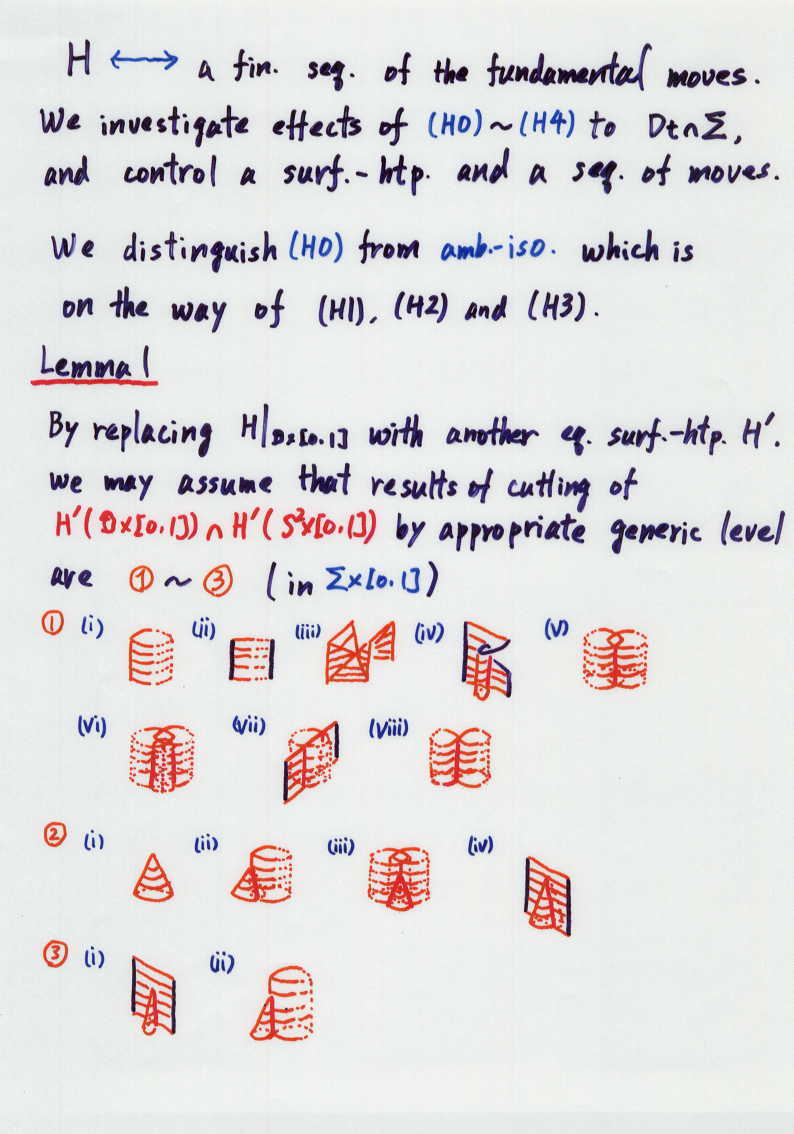 H ⟷ a fin. seq. of the fundamental moves.
We investigate effects of (H0) ~ (H4) to Dt∩Σ,
and control a surf.-htp. and a seq. of moves.
We distinguish (H0) from amb.-iso. which is
on the way of (H1), (H2) and (H3).
Lemma 1
By replacing H|D×[0.1] with another eq. surf.-htp. H'.
we may assume that results of cutting of
H'(D×[0.1])∩H'(S²×[0.1]) by appropriate generic level
are ① ~ ③ (in Σ×[0.1])
① (i) (ii) (iii) (iv) (v)
(vi) (vii) (viii)
② (i) (ii) (iii) (iv)
③ (i) (ii)